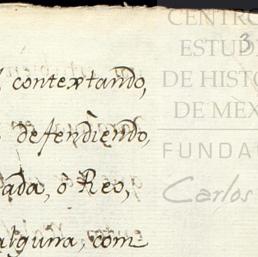 contextando,
defendiendo,
ada, ò Reo,
alguna, com
3
CENTRO
ESTUD
DE HISTO
DE MÉX
FUNDA
Carlos